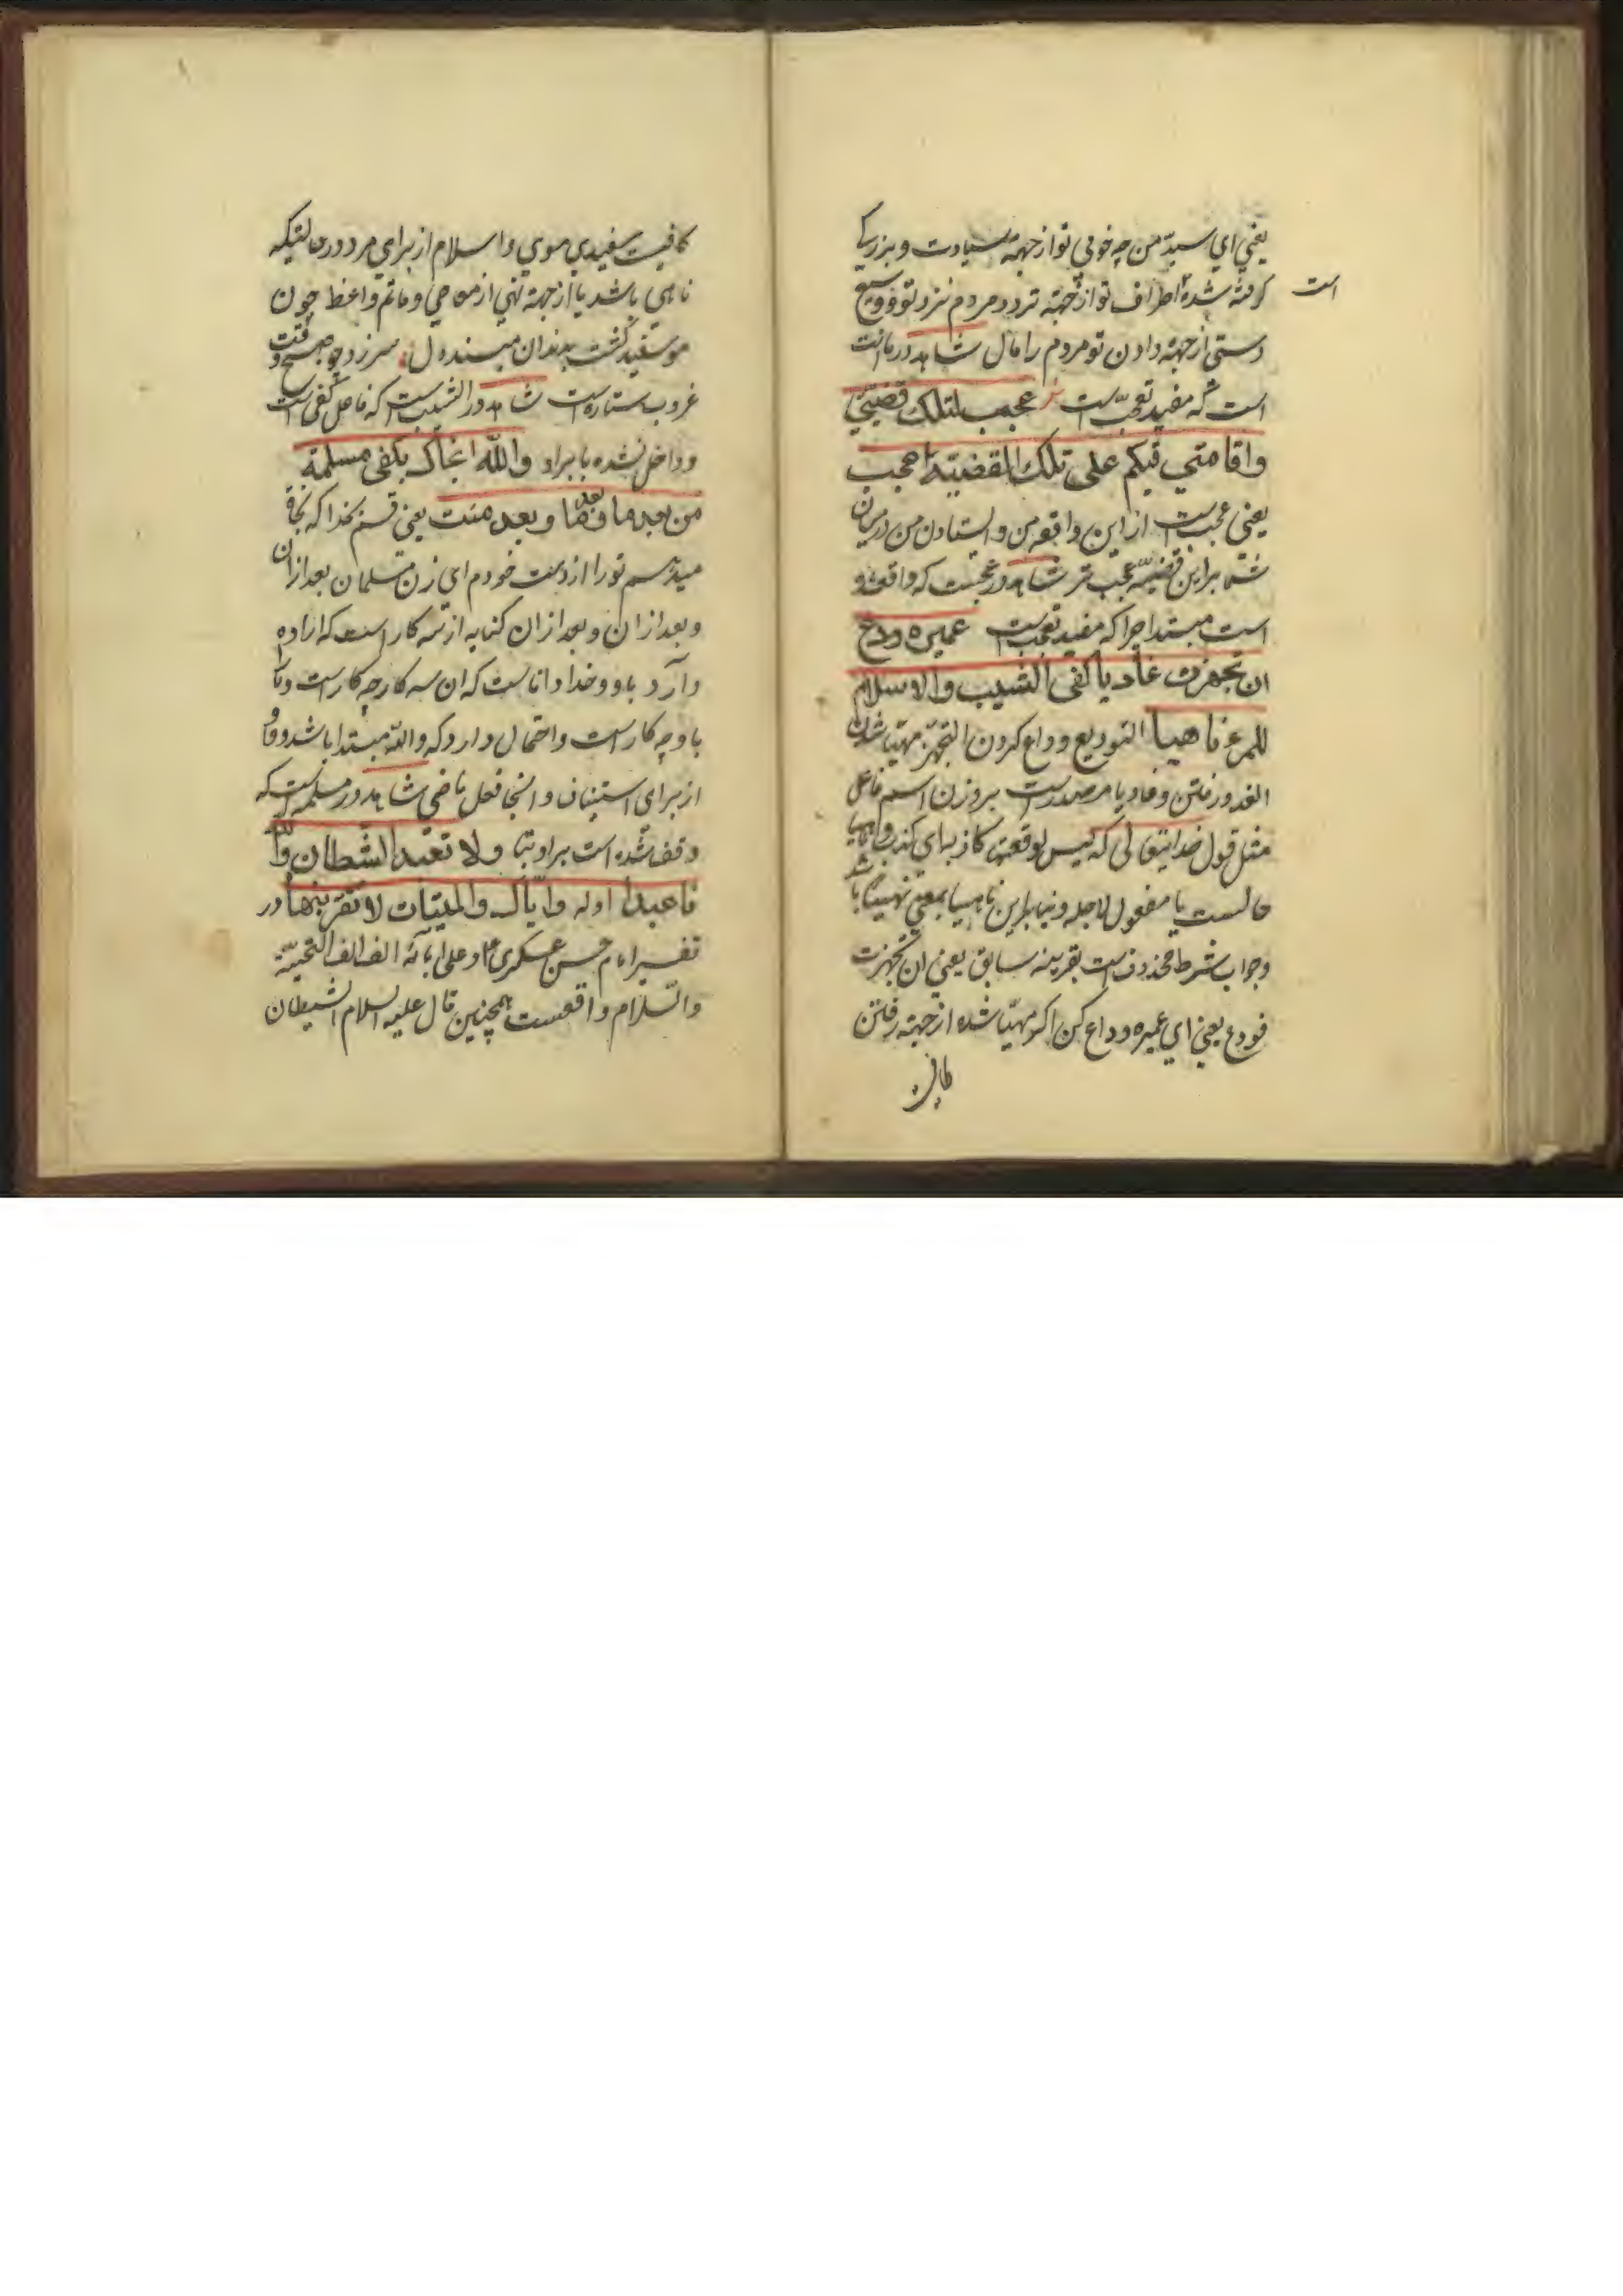 یعنی ای سید من چه خوبی تو از جهة سیادت و بزرگی
کوفته شده اطراف تو از جهة تردد مردم نزد تو و وسیع
است
دستی از جهة دادن تو مردم را مال شاهد در ما انت
است که مفید تعجب است عجب لتلک قضیتی
واقامتی فیکم علی تلک القضیة اعجب
یعنی عجب است از این واقعه من و ایستادن من در میان
شما بر این قضیه عجب تر شاهد در عجبست که واقع شده
است مبتدا چرا که مفید تعجب است عمیره ودع
ان تجهزت غادیا کفی الشیب والاسلام
للمرء ناهیا التودیع وداع کردن التجهز مهیا شدن
الغدو رفتن و غادیا مصدر است بر وزن اسم فاعل
مثل قول خدایتعالی که لیس لوقعتها کاذبه ای کذب و ناهیا
حالست یا مفعول لاجله و بنا براین ناهیا بمعنی نهیا باشد
وجواب شرط محذوف است بقرینه سابق یعنی ان تجهزت
فودع یعنی ای عمیره وداع کن اگر مهیا شده از جهة رفتن
کافیست سفیدی موی واسلام از برای مرد در حالتیکه
ناهی باشد یا از جهة نهی از مناهی و ماتم واعظ چون
مو سفید گشت بدندان مبند دل سر زد چو صبح وقت
غروب ستاره است شاهد در الشیب است که فاعل کفی است
و داخل نشده با براو والله انجاک بکفی مسلمة
من بعد ما وبعد ما وبعد مت یعنی قسم بخدا که نجاة
میدهم تو را از دست خودم ای زن مسلمان بعد از ان
و بعد از ان و بعد از ان کنایه از سه کار است که اراده
دارد باو و خدا دانا است که ان سه کار چه کار است و تا
با و چه کار است و احتمال دارد که والله مبتدا باشد و واو
از برای استیناف و انجا فعل ماضی شاهد در مسلمه است که
وقف شده است براو بتا ولا تعبد الشیطان والله
فاعبدا اوله وایاک والمیتات لا تقربنها در
تفسیر امام حسن عسکری علیه وعلی آبائه الف الف التحیة
والسلام واقعست همچنین قال علیه السلام الشیطان